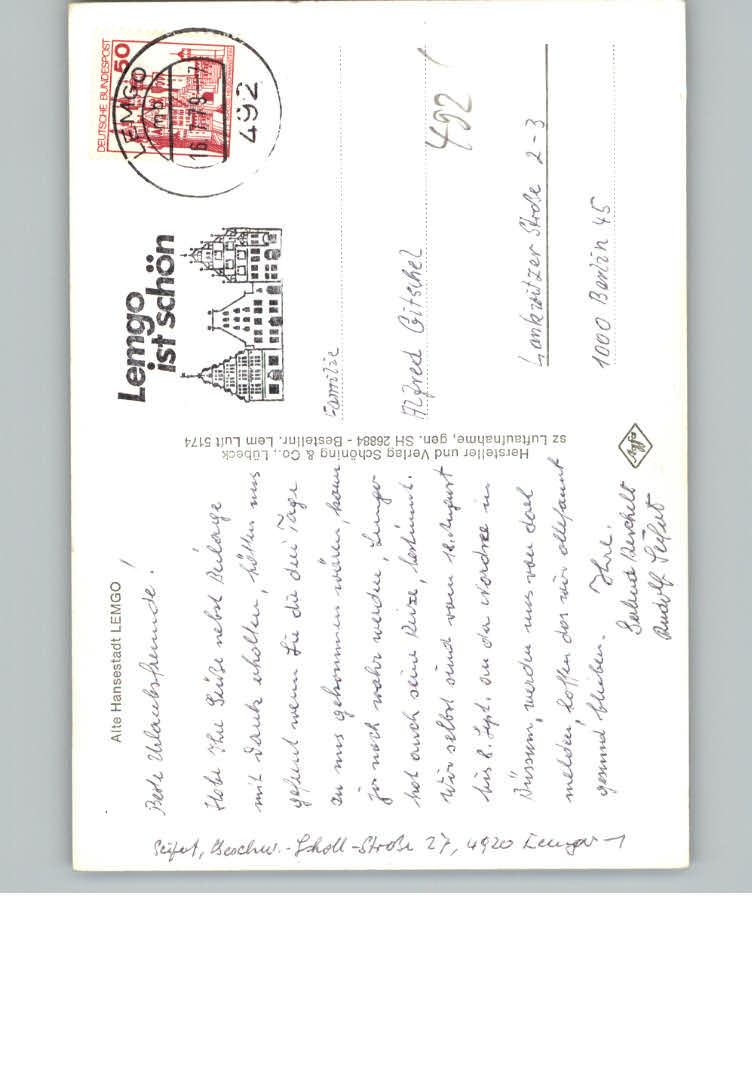 Alte Hansestadt LEMGO
Beste Urlaubsfreunde!
Habe Ihre Grüße nebst Beilage
mit Dank erhalten, hätten uns
gefreut wenn Sie die drei Tage
zu uns gekommen wären, kann
ja noch wahr werden, Lemgo
hat auch seine Reize, bestimmt.
Wir selbst sind vom 18. August
bis 8. Sept. an der Nordsee in
Büssum, werden uns von dort
melden, hoffen das wir allesamt
gesund bleiben. Ihre.
Rudolf Seifert
Seifert, Geschw.-Scholl-Straße 27, 4920 Lemgo-1
Hersteller und Verlag Schöning & Co., Lübeck
sz Luftaufnahme, gen. SH 26884 - Bestellnr. Lem Luft 5174
Agfa
DEUTSCHE BUNDESPOST
50
LEMGO
16.7.79
492
Lemgo
ist schön
Familie
Alfred Gitschel
492
Lankwitzer Straße 2-3
1000 Berlin 45